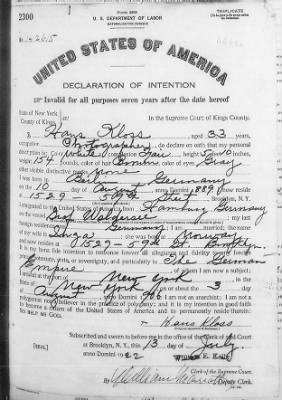 TRIPLICATE
2300
U. S. DEPARTMENT OF LABOR
NATURALIZATION SERVICE
No. 142615
UNITED STATES OF AMERICA
DECLARATION OF INTENTION
Invalid for all purposes seven years after the date hereof
State of New York
County of Kings
In the Supreme Court of Kings County.
I, Hans Kloss aged 33 years,
occupation Photographer, do declare on oath that my personal
description is: Color White, complexion Fair, height 5 feet inches,
weight 154 pounds, color of hair Brown, color of eyes Gray
other visible distinctive marks none
I was born in Germany
on the 10 day of August, anno Domini 1889; I now reside
at 1529 59th Street Brooklyn, N. Y.
I emigrated to the United States of America from Hamburg Germany
on the vessel Waldersee; my last
foreign residence was Germany; I am married; the name
of my wife is; she was born at Norway
and now resides at 1529 - 59th St. Brooklyn
It is my bona fide intention to renounce forever all allegiance and fidelity to any foreign
prince, potentate, state, or sovereignty, and particularly to The German
Empire, of whom I am now a subject;
I arrived at the port of New York, in the
State of New York, on or about the 3 day
of August, anno Domini 1906; I am not an anarchist; I am not a
polygamist nor a believer in the practice of polygamy; and it is my intention in good faith
to become a citizen of the United States of America and to permanently reside therein:
SO HELP ME GOD.
Hans Kloss
Subscribed and sworn to before me in the office of the Clerk of said Court
at Brooklyn, N. Y., this 13 day of July
anno Domini 1922
[SEAL]
William E. Kelly
Clerk of the Supreme Court.
By William, Deputy Clerk.